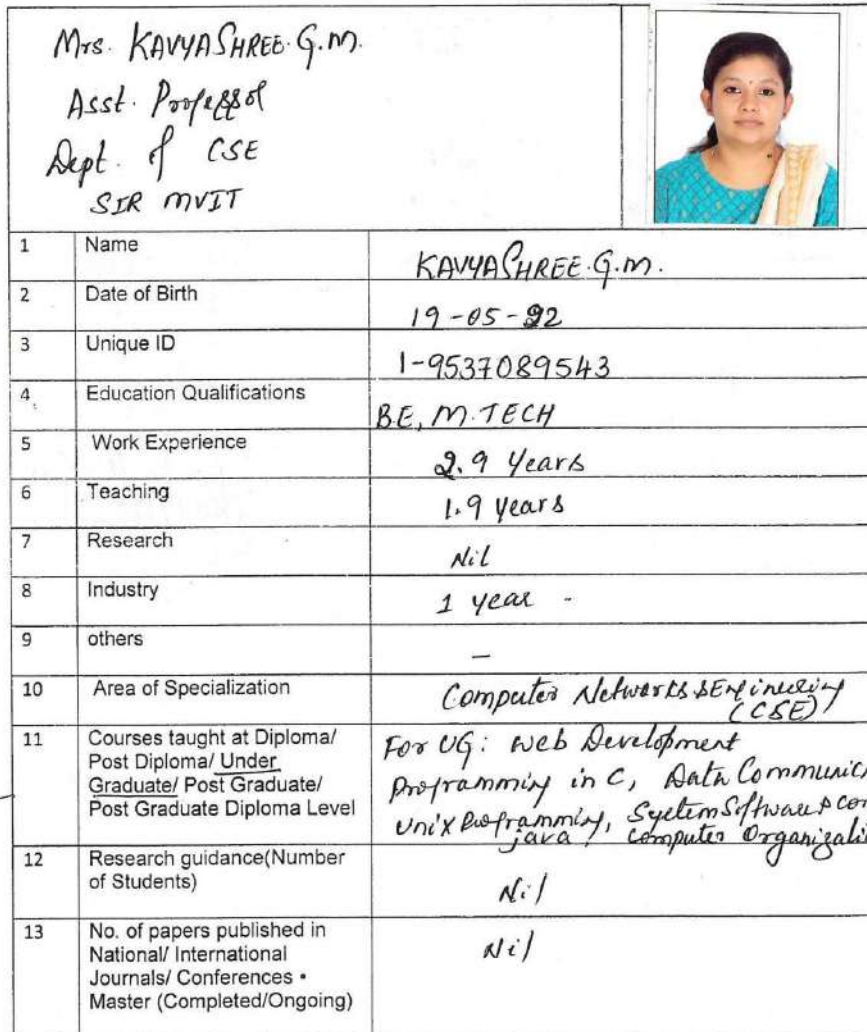 Mrs. KAVYASHREE. G.M.
Asst. Professor
Dept. of CSE
SIR MVIT
1 Name KAVYASHREE. G.M.
2 Date of Birth 19-05-92
3 Unique ID 1-9537089543
4 Education Qualifications B.E, M.TECH
5 Work Experience 2.9 Years
6 Teaching 1.9 years
7 Research Nil
8 Industry 1 year -
9 others —
10 Area of Specialization Computer Networks & Engineering
(CSE)
11 Courses taught at Diploma/ For UG: Web Development
Post Diploma/ Under Programming in C, Data Communic
Graduate/ Post Graduate/ Unix Programming, System Software & Co
Post Graduate Diploma Level java, Computer Organizati
12 Research guidance(Number
of Students) Nil
13 No. of papers published in Nil
National/ International
Journals/ Conferences •
Master (Completed/Ongoing)